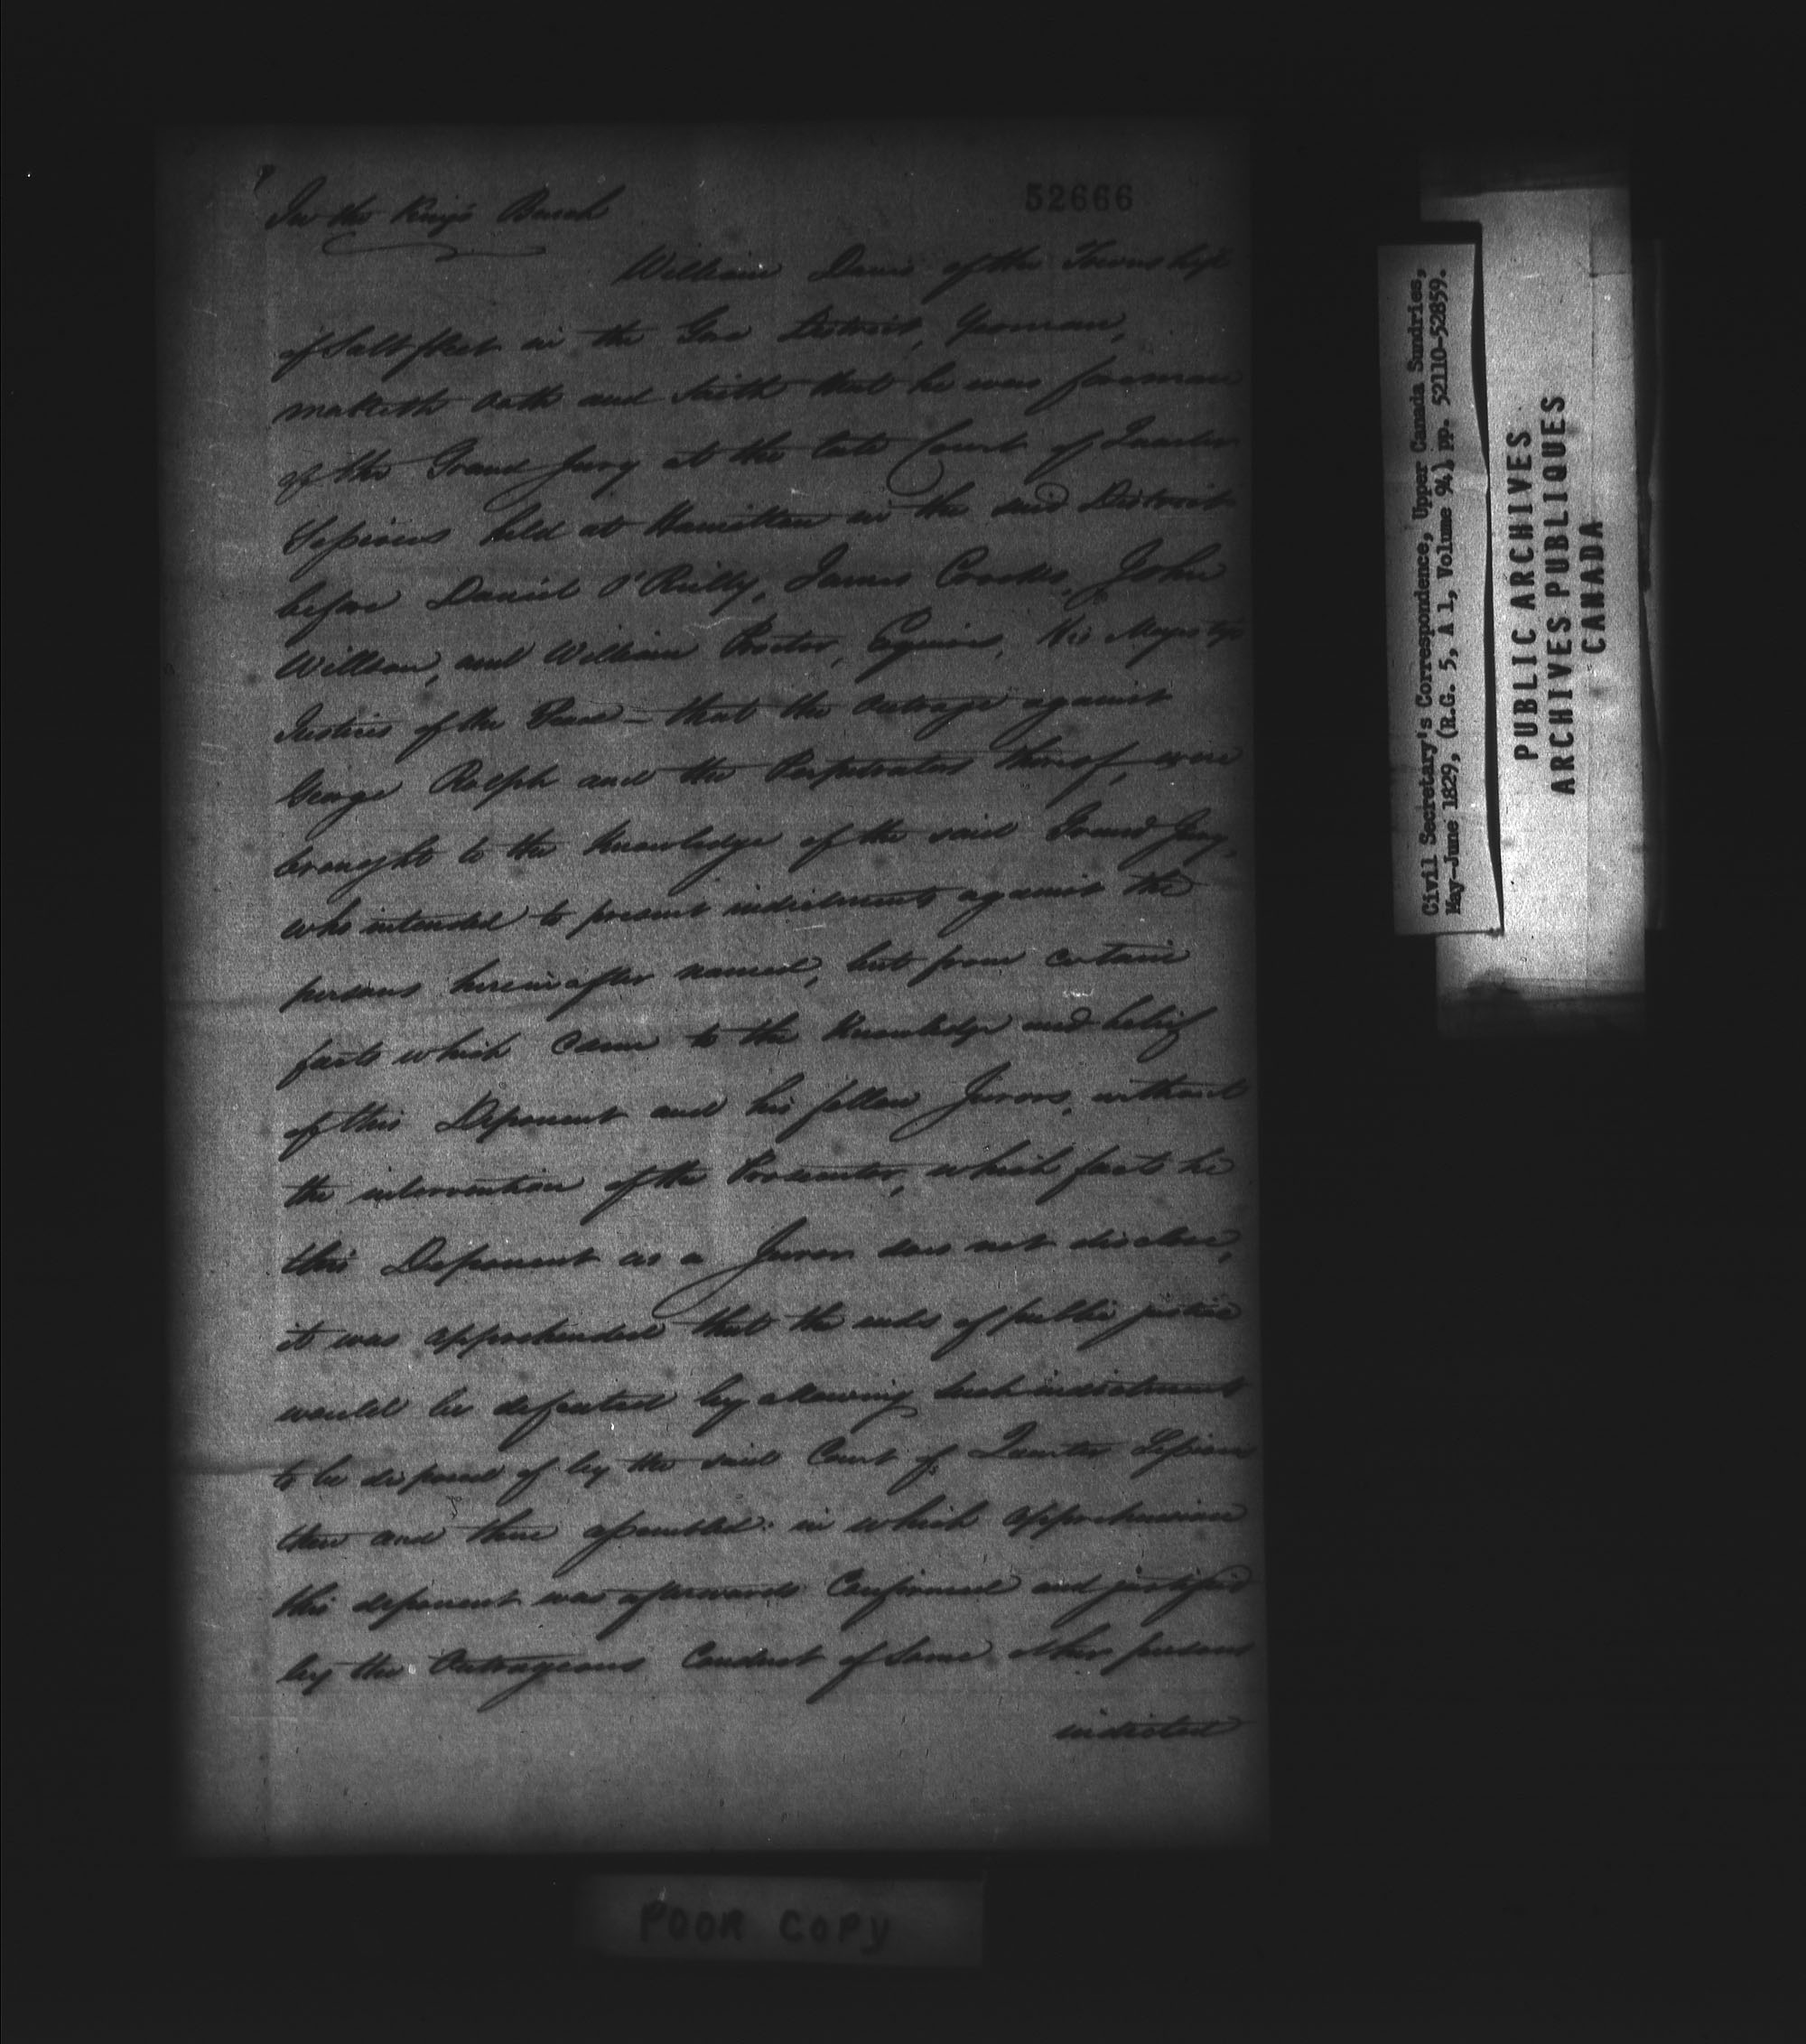 52666
In the King's Bench
William Davis of the Township
of Saltfleet in the Gore District, Yeoman,
maketh oath and saith that he was foreman
of the Grand Jury at the late Court of Quarter
Sessions held at Hamilton in the said District
before Daniel O'Reilly, James Crooks, John
Willson, and William Proctor, Esquires, His Majestys
Justices of the Peace – that the outrage against
George Rolph and the Perpetrators thereof, were
brought to the Knowledge of the said Grand Jury,
who intended to present indictments against the
persons hereinafter named, but from certain
facts which came to the Knowledge and belief
of this Deponent and his fellow Jurors, without
the intervention of the Prosecutor, which facts he
this Deponent as a Juror does not disclose,
it was apprehended that the ends of public justice
would be defeated by allowing such indictment
to be disposed of by the said Court of Quarter Sessions
then and there assembled: in which apprehension
this deponent was afterwards Confirmed and justified
by the Outrageous Conduct of some other persons
indicted
POOR COPY
Civil Secretary's Correspondence, Upper Canada Sundries,
May-June 1829, (R.G. 5, A 1, Volume 94) pp. 52110-52859.
PUBLIC ARCHIVES
ARCHIVES PUBLIQUES
CANADA